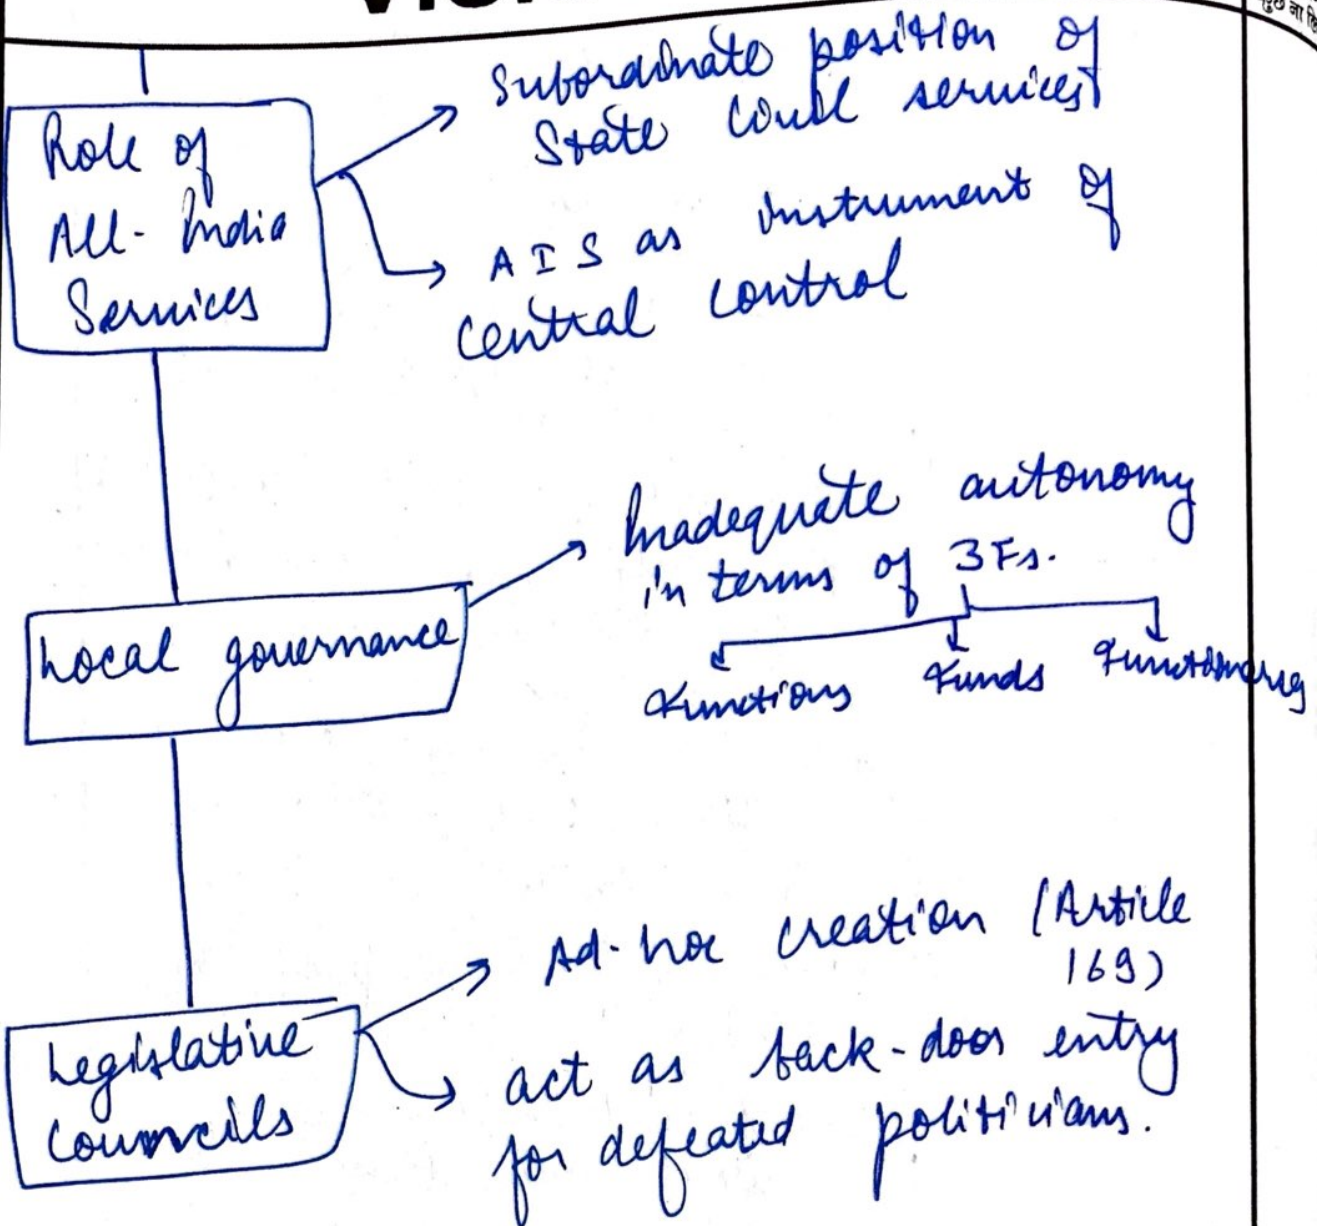 Role of
All-India
Services
Subordinate position of
State Civil services
AIS as instrument of
central control
Local governance
Inadequate autonomy
in terms of 3Fs.
Functions Funds Functionaries
Legislative
Councils
Ad-hoc creation (Article
169)
act as back-door entry
for defeated politicians.